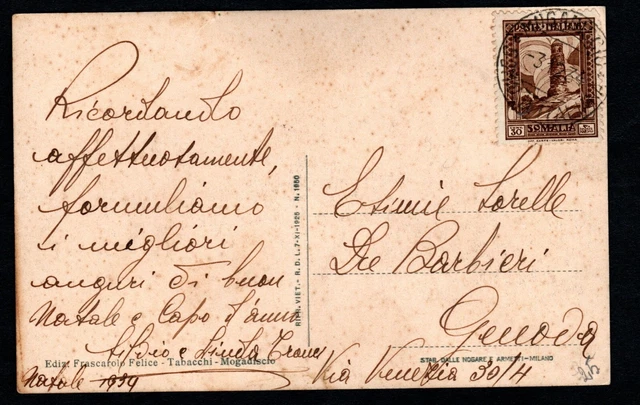 POSTE ITALIANE
30
SOMALIA
Ricordando
affettuosamente,
formuliamo
i migliori
auguri di buon
Natale e Capo d'anno
Silvio e Linda
Natale 1939
Ediz. Frascarolo Felice - Tabacchi - Mogadiscio
RIPR. VIET. - R. D. L. 7-XI-1925 - N. 1950
Esimie Sorelle
De Barbieri
Genova
Via Venezia 30/4
STAB. DALLE NOGARE E ARMETTI - MILANO